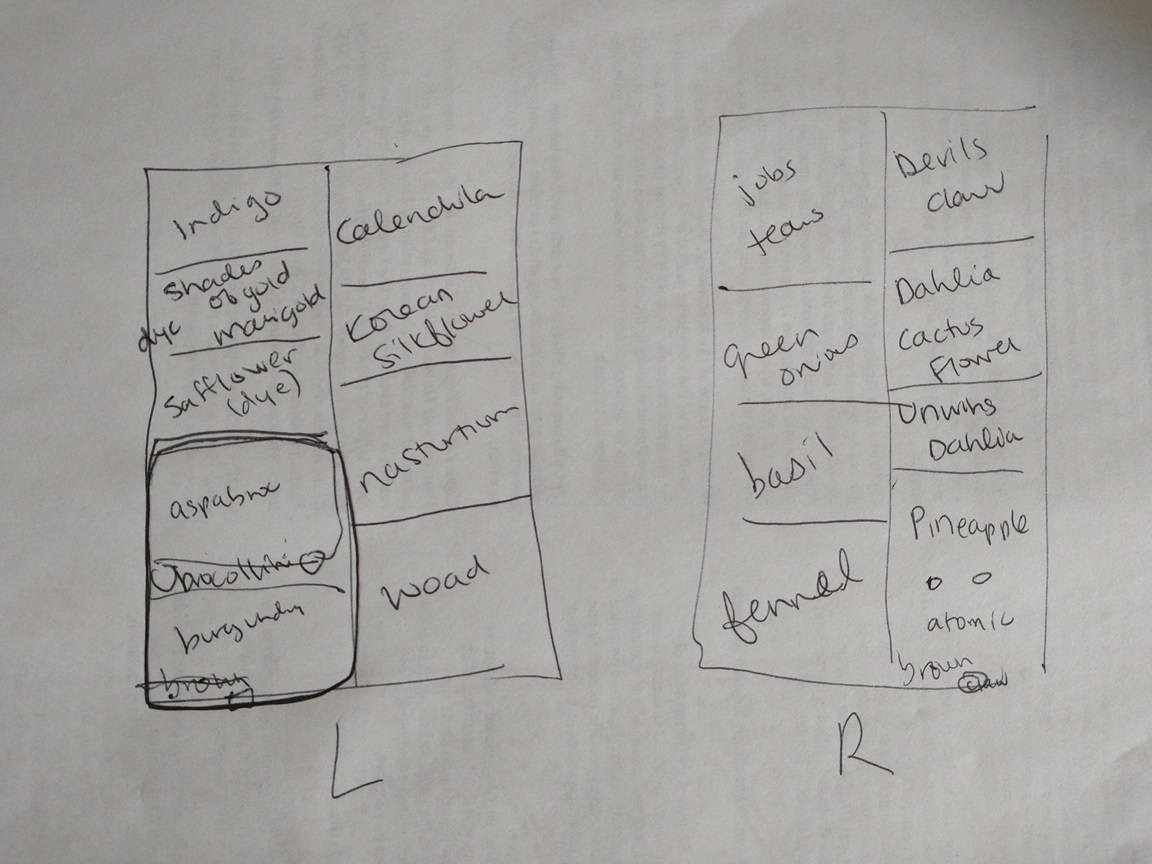 Indigo
shades
of gold
dye marigold
Safflower
(dye)
burgundy
brown
Calendula
Korean
Silkflower
nasturtium
woad
L
jobs
tears
green
onions
basil
fennel
Devils
claw
Dahlia
Cactus
Flower
Unwins
Dahlia
Pineapple
atomic
brown
R